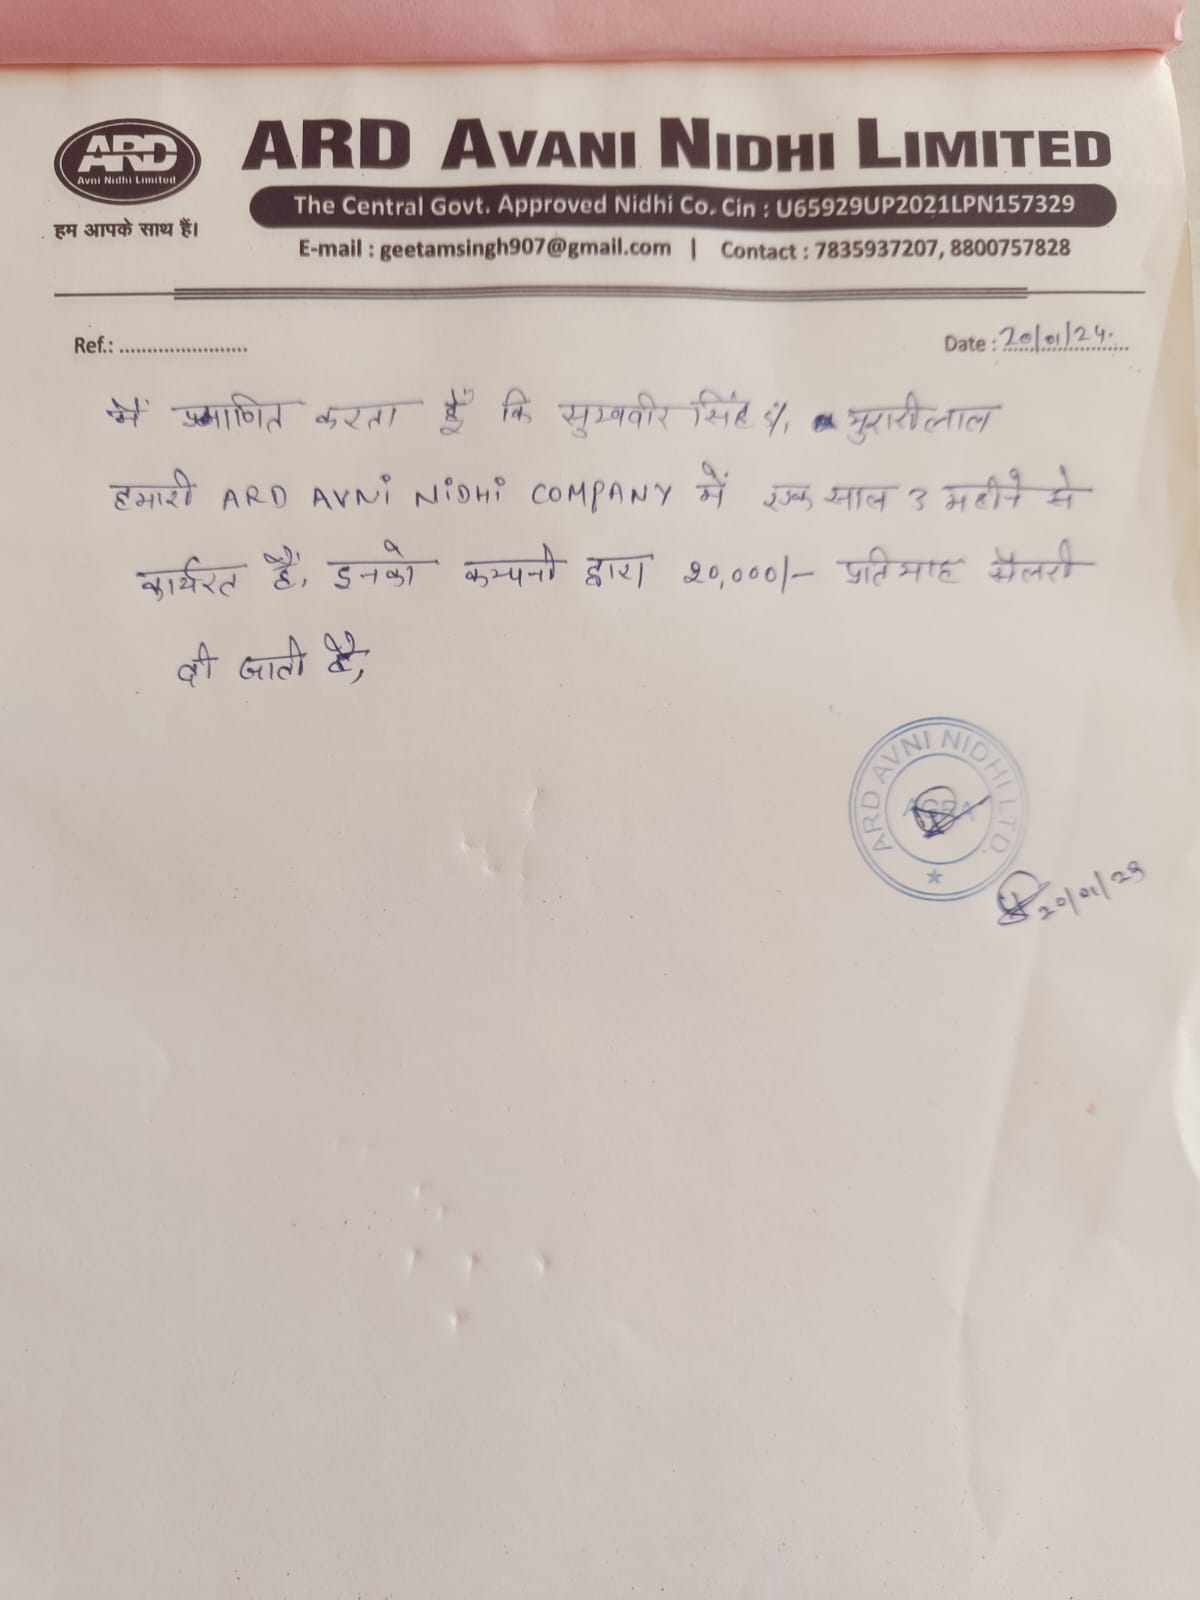 ARD
Avni Nidhi Limited
हम आपके साथ हैं।
ARD AVANI NIDHI LIMITED
The Central Govt. Approved Nidhi Co. Cin : U65929UP2021LPN157329
E-mail : geetamsingh907@gmail.com | Contact : 7835937207, 8800757828
Ref.: ........................ Date : 20/01/24.
में प्रमाणित करता हूँ कि सुखवीर सिंह S/. मुरारीलाल
हमारी ARD AVNI NIDHI COMPANY में एक साल 3 महीने से
कार्यरत हैं, इनको कम्पनी द्वारा 20,000/- प्रतिमाह सैलरी
दी जाती है,
ARD AVNI NIDHI LTD.
AGRA
20/01/24